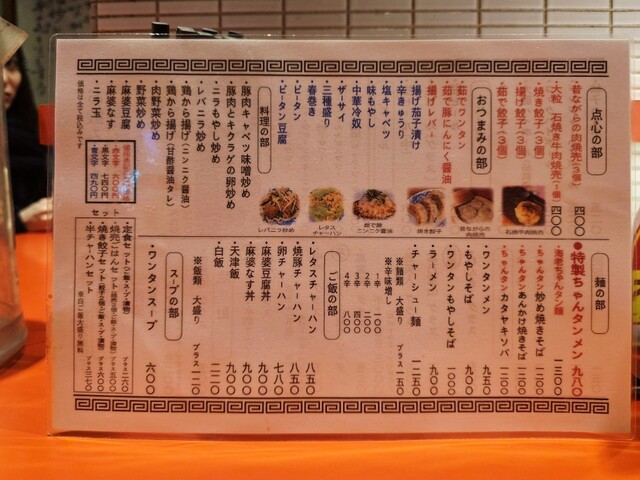 点心の部
昔ながらの肉焼売(3個) 四〇〇
大粒 石焼き牛肉焼売(1個) 四〇〇
焼き餃子(3個)
揚げ餃子(3個)
茹で餃子(3個)
おつまみの部
茹でワンタン
茹で豚にんにく醤油
揚げレバー
揚げ茄子漬け
辛きゅうり
塩キャベツ
味もやし
中華冷奴
ザーサイ
三種盛り
春巻き
ピータン
ピータン豆腐
料理の部
豚肉キャベツ味噌炒め
豚肉とキクラゲの卵炒め
ニラもやし炒め
レバニラ炒め
鶏から揚げ(ニンニク醤油)
鶏から揚げ(甘酢醤油タレ)
肉野菜炒め
野菜炒め
麻婆豆腐
麻婆なす
ニラ玉
・赤文字 六〇〇円
・黒文字 七四〇円
・青文字 四九〇円
価格は全て税込みです
レバニラ炒め
レタスチャーハン
茹で豚ニンニク醤油
焼き餃子
昔ながらの肉焼売
石焼牛肉焼売
麺の部
●特製ちゃんタンメン 九八〇
海老ちゃんタン麺 一三〇〇
ちゃんタン炒め焼きそば 一二〇〇
ちゃんタンあんかけ焼きそば 一二〇〇
ちゃんタンカタヤキソバ 一二〇〇
ワンタンメン 九五〇
もやしそば 九〇〇
ワンタンもやしそば 一〇〇〇
ラーメン 九〇〇
チャーシュー麺 一二五〇
※麺類 大盛り プラス 一五〇
※辛味増し
1辛 一〇〇
2辛 二〇〇
3辛 三〇〇
4辛 四〇〇
ご飯の部
レタスチャーハン 八五〇
焼豚チャーハン 八五〇
卵チャーハン 七八〇
麻婆豆腐丼 九〇〇
麻婆なす丼 九〇〇
天津飯 九〇〇
白飯 二二〇
※飯類 大盛り プラス 一二〇
スープの部
ワンタンスープ 六〇〇
セット
・定食セット プラス 二六〇
・焼売ごはんセット プラス 五〇〇
・焼き餃子セット プラス 六〇〇
・半チャーハンセット プラス 三七〇
※白ご飯大盛り無料